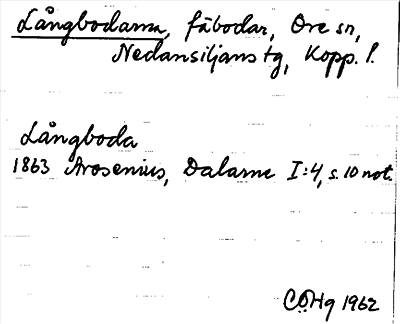 Långbodarna, fäbodar, Ore sn,
Nedansiljans tg, Kopp. l.
Långboda
1863 Arosenius, Dalarne I:4, s. 10 not.
CÖHg 1962